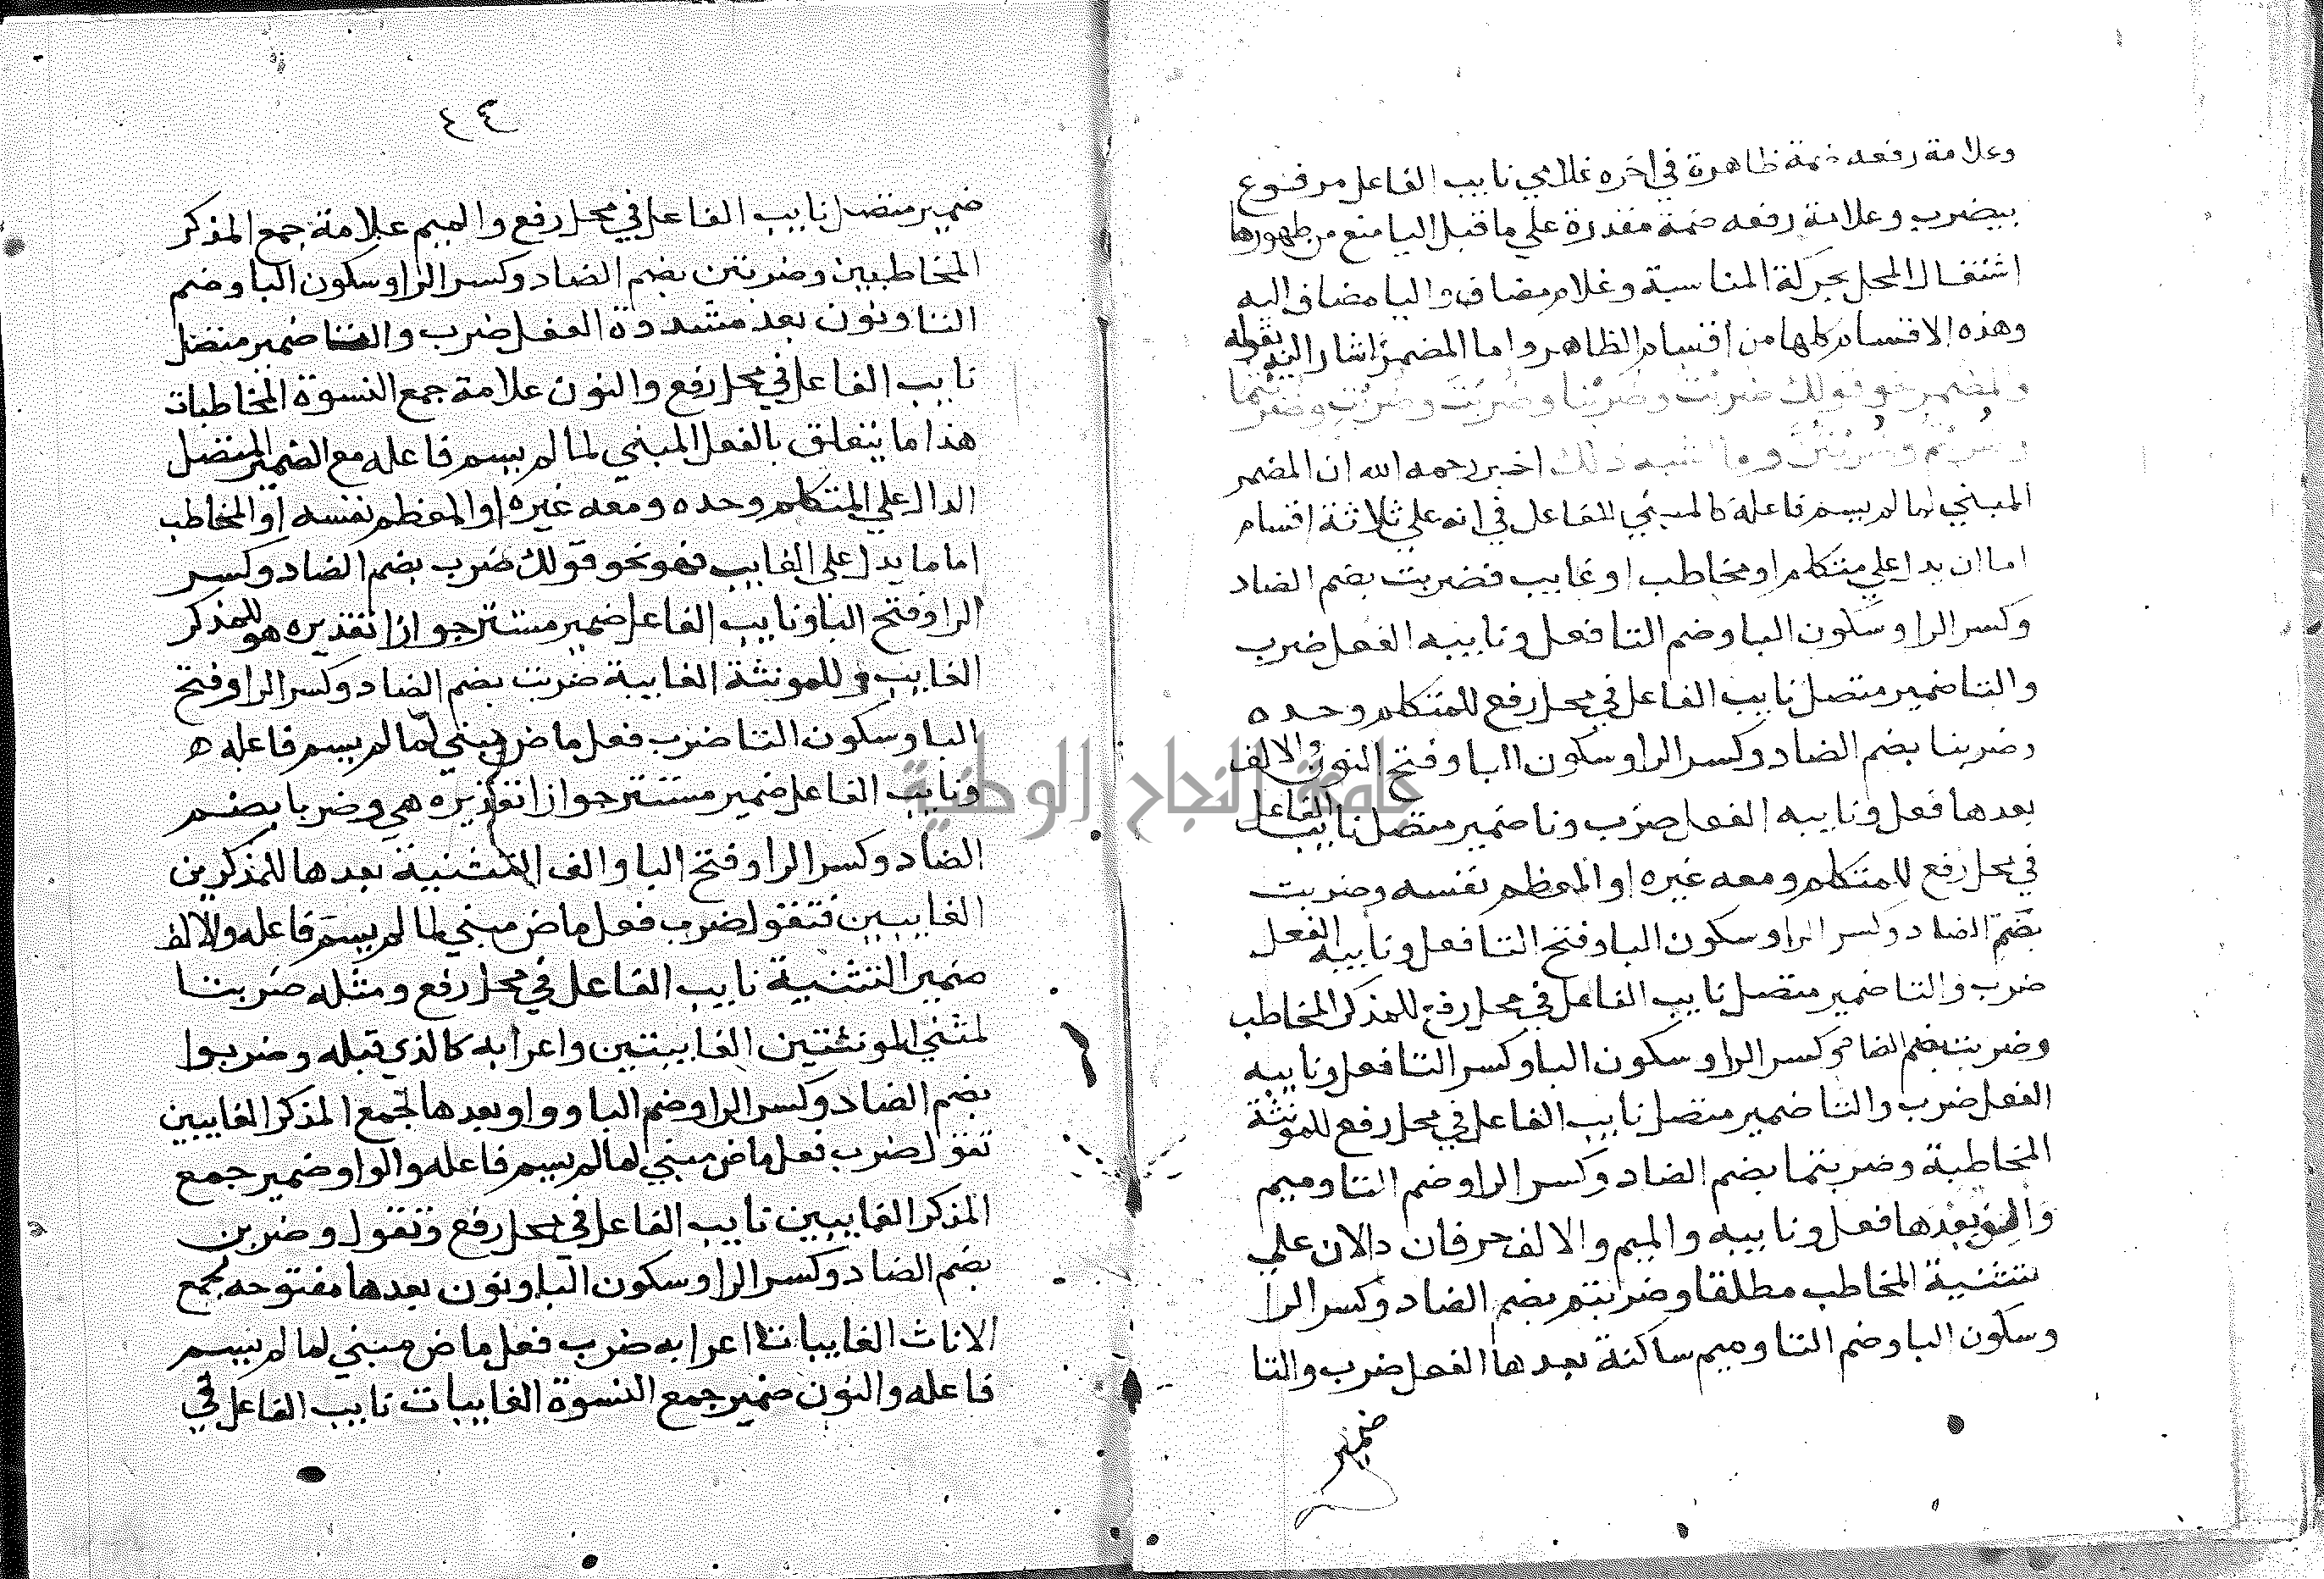 وعلامة رفعه ضمة ظاهرة في اخره غلامي نايب الفاعل مرفوع
بيضرب وعلامة رفعه ضمة مقدرة علي ما قبل اليا منع من ظهورها
اشتغال المحل بحركة المناسبة وغلام مضاف واليا مضاف اليه
وهذه الاقسام كلها من اقسام الظاهر واما المضمر اشار اليه بقوله
والمضمر نحو قولك ضربت وضربنا وضربت وضربت وضربتما
وضربتم وضربتن وما اشبه ذلك اخبر رحمه الله ان المضمر
المبني لما لم يسم فاعله كالمبني للفاعل في انه علي ثلاثة اقسام
اما ان يدل علي متكلم او مخاطب او غايب فضربت بضم الضاد
وكسر الرا وسكون البا وضم التا فعل ونايبه الفعل ضرب
والتا ضمير متصل نايب الفاعل في محل رفع للمتكلم وحده
وضربنا بضم الضاد وكسر الرا وسكون البا وفتح النون والالف
بعدها فعل ونايبه الفعل ضرب ونا ضمير متصل نايب الفاعل
في محل رفع للمتكلم ومعه غيره او المعظم نفسه وضربت
بضم الضاد وكسر الرا وسكون البا وفتح التا فعل ونايبه الفعل
ضرب والتا ضمير متصل نايب الفاعل في محل رفع للمذكر المخاطب
وضربت بضم الضاد وكسر الرا وسكون البا وكسر التا فعل ونايبه
الفعل ضرب والتا ضمير متصل نايب الفاعل في محل رفع للمونثة
المخاطبة وضربتما بضم الضاد وكسر الرا وضم التا وميم
والف بعدها فعل ونايبه والميم والالف حرفان دالان علي
تثنية المخاطب مطلقا وضربتم بضم الضاد وكسر الرا
وسكون البا وضم التا وميم ساكنة بعدها الفعل ضرب والتا
ضمير
٤٤
ضمير متصل نايب الفاعل في محل رفع والميم علامة جمع المذكر
المخاطبين وضربتن بضم الضاد وكسر الرا وسكون البا وضم
التا ونون بعد مشددة الفعل ضرب والتا ضمير متصل
نايب الفاعل في محل رفع والنون علامة جمع النسوة المخاطبات
هذا ما يتعلق بالفعل المبني لما لم يسم فاعله مع الضمير المتصل
الدال علي المتكلم وحده ومعه غيره او المعظم نفسه او المخاطب
اما ما يدل علي الغايب فهو نحو قولك ضرب بضم الضاد وكسر
الرا وفتح البا ونايب الفاعل ضمير مستتر جوازا تقديره هو للمذكر
الغايب وللمونثة الغايبة ضربت بضم الضاد وكسر الرا وفتح
البا وسكون التا ضرب فعل ماض مبني لما لم يسم فاعله
ونايب الفاعل ضمير مستتر جوازا تقديره هي وضربا بضم
الضاد وكسر الرا وفتح البا والف التثنية بعدها للمذكرين
الغايبين فتقول ضرب فعل ماض مبني لما لم يسم فاعله والالف
ضمير التثنية نايب الفاعل في محل رفع ومثله ضربتا
لمثني المونثتين الغايبتين واعرابه كالذي قبله وضربوا
بضم الضاد وكسر الرا وضم البا وواو بعدها لجمع المذكر الغايبين
تقول ضرب فعل ماض مبني لما لم يسم فاعله والواو ضمير جمع
المذكر الغايبين نايب الفاعل في محل رفع وتقول وضربن
بضم الضاد وكسر الرا وسكون البا ونون بعدها مفتوحه لجمع
الاناث الغايبات اعرابه ضرب فعل ماض مبني لما لم يسم
فاعله والنون ضمير جمع النسوة الغايبات نايب الفاعل في
جامعة النجاح الوطنية